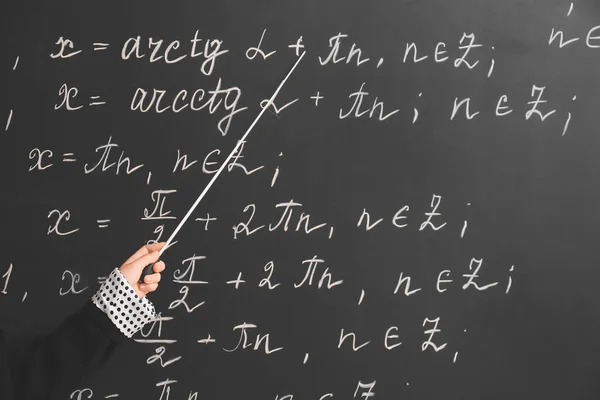 , x = arctg α + πn, n ∈ Z; n ∈
, x = arcctg α + πn; n ∈ Z;
x = πn, n ∈ Z;
x = π/2 + 2πn, n ∈ Z,
1, x π/2 + 2πn, n ∈ Z;
π/2 + πn, n ∈ Z,
x = π n ∈ Z